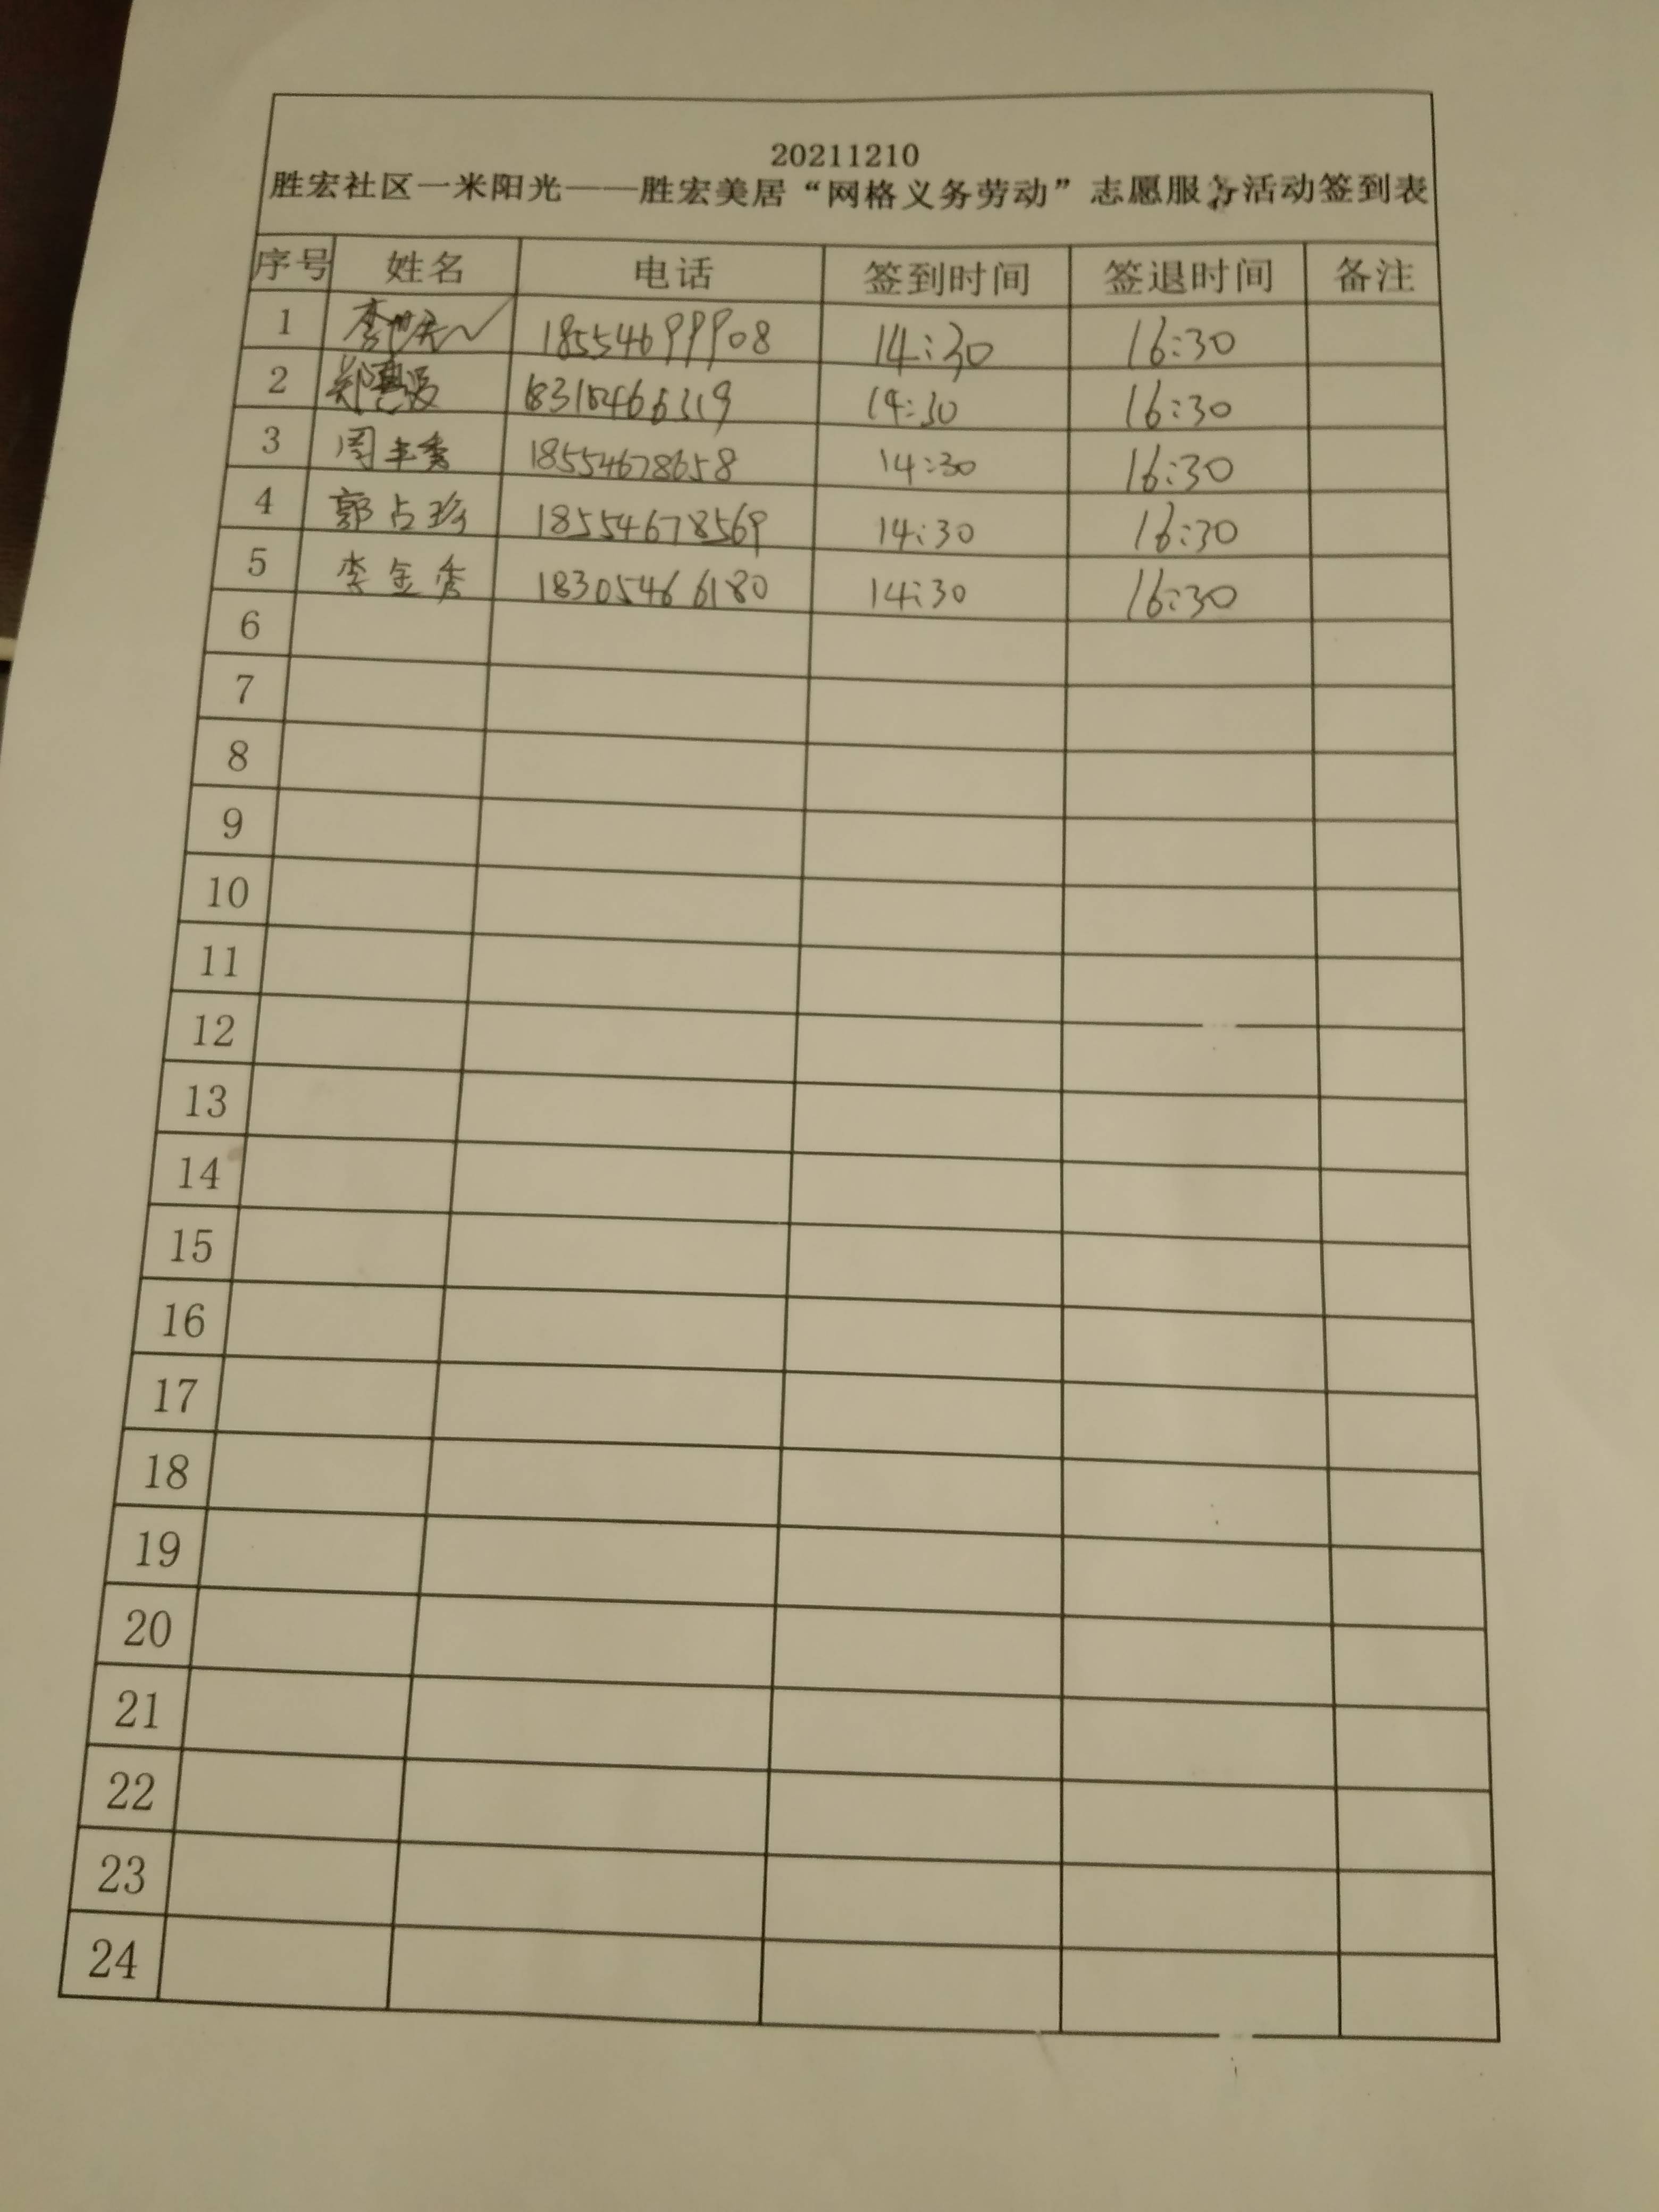 20211210
胜宏社区一米阳光——胜宏美居“网格义务劳动”志愿服务活动签到表
序号 姓名 电话 签到时间 签退时间 备注
1 18554699908 14:30 16:30
2 14:30 16:30
3 周丰秀 18554678658 14:30 16:30
4 郭占珍 18554678569 14:30 16:30
5 李金秀 18305466180 14:30 16:30
6
7
8
9
10
11
12
13
14
15
16
17
18
19
20
21
22
23
24